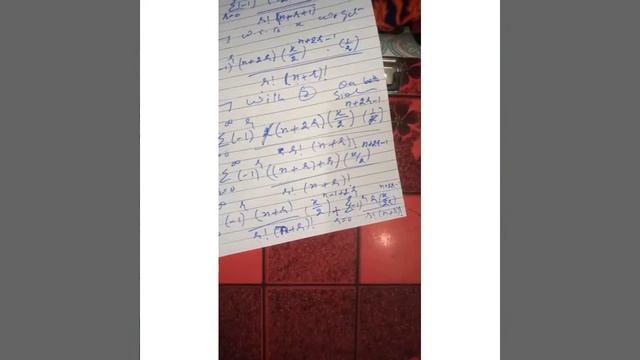 Σ(-1)
r=0 r! (n+r+1)
w.r. to x we get
-1)^r (n+2r) (x/2)^{n+2r-1} . (1/2)
r! (n+r)!
with ② on both sides
Σ(-1)^r (n+2r) (x/2)^{n+2r-1} (1/2)
r! (n+r)!
Σ(-1)^r ((n+r)+r) (x/2)^{n+2r-1}
r! (n+r)!
(-1)^r (n+r) (x/2)^{n-1+2r} + Σ(-1)^r r (x/2)
r! (n+r)! r=0 r! (n+r)!